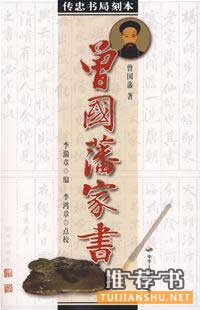 传忠书局刻本
曾国藩 著
曾國藩家書
李瀚章 编 李鸿章 点校
推荐书
TUIJIANSHU.NET